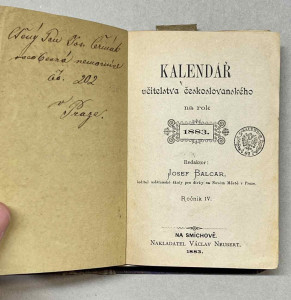 Ctěný Pan Jos. Čermák
nemocnice
čís. 202
v Praze.
KALENDÁŘ
učitelstva českoslovanského
na rok
1883.
Redaktor:
Josef Balcar,
ředitel měšťanské školy pro dívky na Novém Městě v Praze.
Ročník IV.
NA SMÍCHOVĚ.
Nakladatel Václav Neubert.
1883.